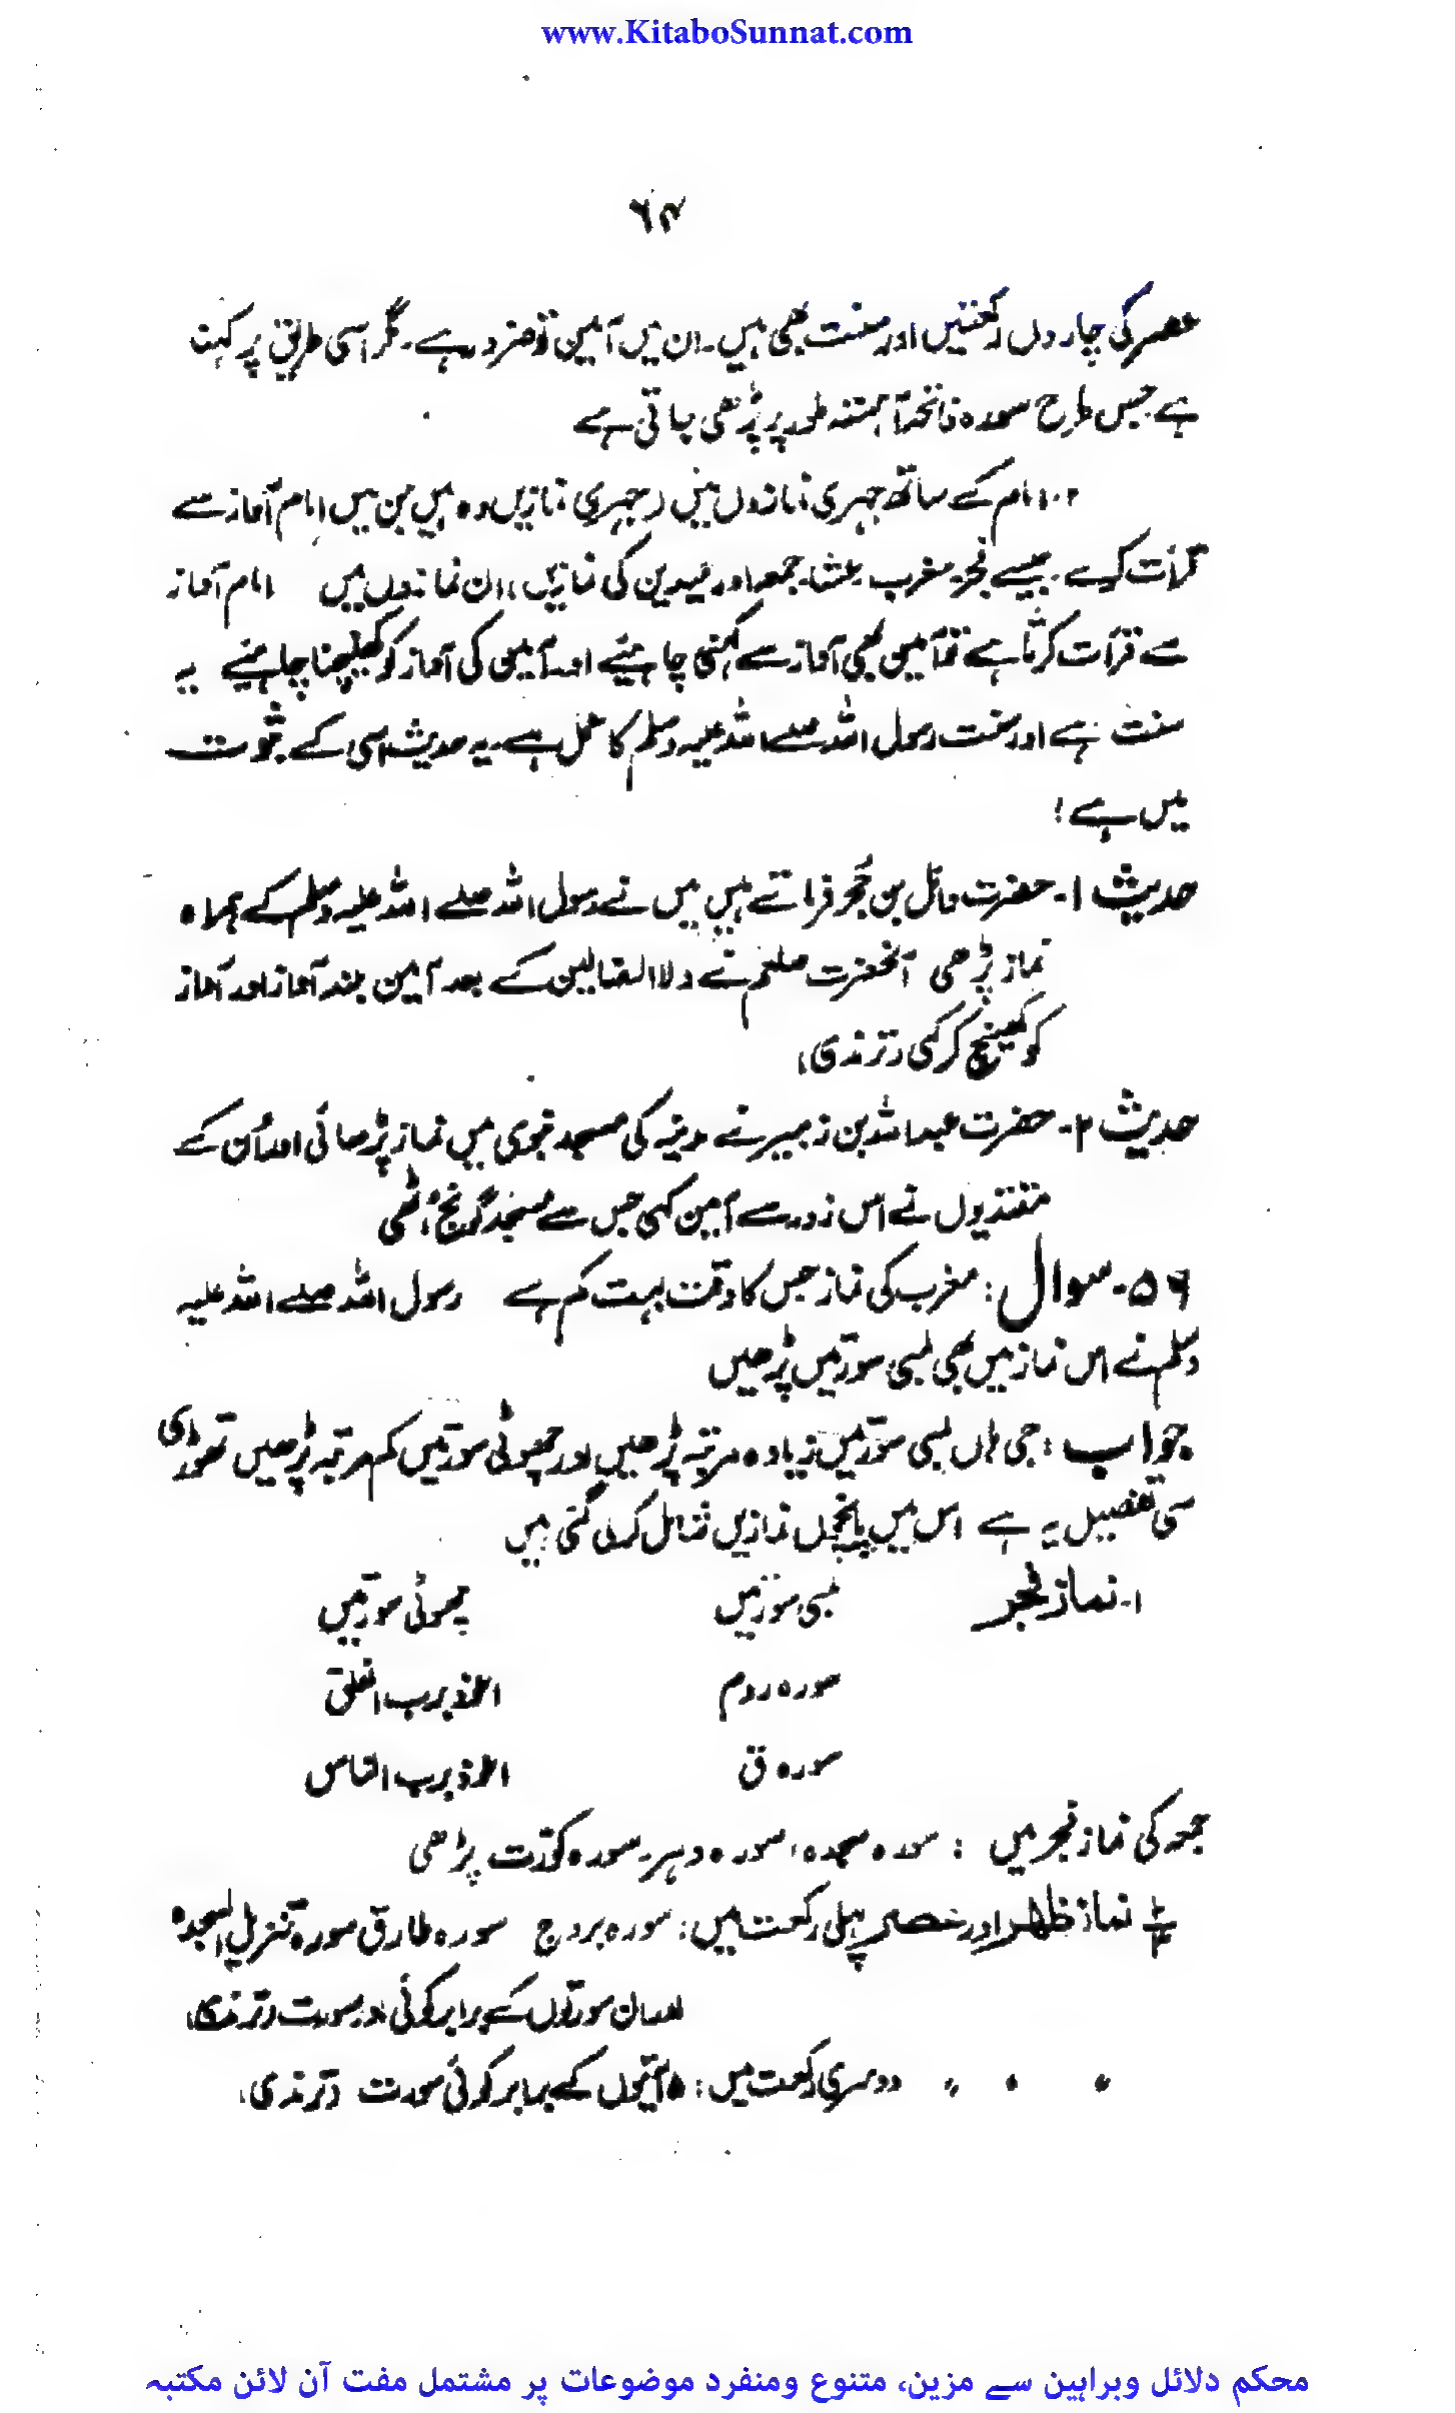 www.KitaboSunnat.com
۶۴
عصر کی چاروں رکعتیں اور سنت بھی ہیں۔ ان میں آمین تو ضرور ہے۔ مگر اسی طریق پر کہنا
ہے جس طرح سورہ فاتحہ آہستہ طور پر پڑھی جاتی ہے
۲۔ امام کے ساتھ جہری نمازوں میں (جہری نمازیں وہ ہیں جن میں امام آواز سے
قرأت کرے۔ جیسے فجر۔ مغرب۔ عشا۔ جمعہ اور عیدین کی نمازیں) ان نمازوں میں امام آواز
سے قرأت کرتا ہے تو آمین بھی آواز سے کہنی چاہئیے اور آمین کی آواز کو کھینچنا چاہئیے یہ
سنت ہے اور سنت رسول اللہ صلے اللہ علیہ وسلم کا عمل ہے۔ یہ حدیث اسی کے ثبوت
میں ہے:
حدیث ۱۔ حضرت وائل بن حُجر فرماتے ہیں میں نے رسول اللہ صلے اللہ علیہ وسلم کے ہمراہ
نماز پڑھی آنحضرت صلعم نے ولا الضالین کے بعد آمین بلند آواز اور آواز
کو کھینچ کر کہی (ترمذی)
حدیث ۲۔ حضرت عبداللہ بن زبیر نے مدینہ کی مسجد نبوی میں نماز پڑھائی اور اُن کے
مقتدیوں نے اس زور سے آمین کہی جس سے مسجد گونج اُٹھی
۵۶۔ سوال: مغرب کی نماز جس کا وقت بہت کم ہے رسول اللہ صلے اللہ علیہ
وسلم نے اس نماز میں بھی لمبی سورتیں پڑھیں
جواب: جی ہاں لمبی سورتیں زیادہ مرتبہ پڑھیں اور چھوٹی سورتیں کم مرتبہ پڑھیں تھوڑی
سی تفصیل یہ ہے اس میں پانچوں نمازیں شامل کر لی گئی ہیں
۱۔ نماز فجر لمبی سورتیں چھوٹی سورتیں
سورہ روم اعوذ برب الفلق
سورہ ق اعوذ برب الناس
جمعہ کی نماز فجر میں : سورہ سجدہ، سورہ دہر۔ سورہ کوّرت پڑھی
نماز ظہر اور عصر پہلی رکعت میں: سورہ بروج سورہ طارق سورہ تنزیل السجدہ
اور ان سورتوں کے برابر کوئی اور سورت (ترمذی)
〃 〃 〃 دوسری رکعت میں: ۱۵ آیتوں کے برابر کوئی سورت (ترمذی)
محکم دلائل وبراہین سے مزین، متنوع ومنفرد موضوعات پر مشتمل مفت آن لائن مکتبہ